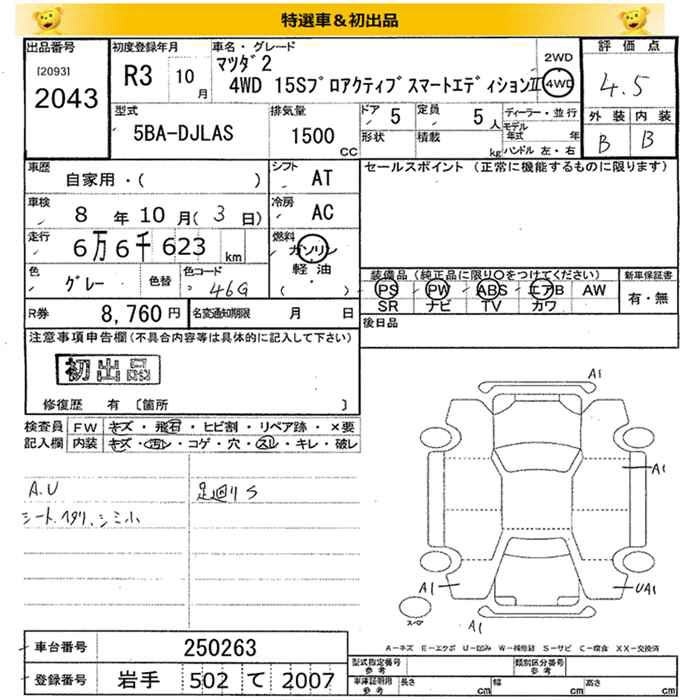 特選車＆初出品
出品番号 初度登録年月 車名・グレード 評価点
[2093] 2043
R3 10月
マツダ2
4WD 15SプロアクティブスマートエディションⅡ
2WD
4WD
4.5
外装 内装
B B
型式 排気量 ドア 5 定員 5人 ディーラー・並行
5BA-DJLAS 1500CC
形状 積載 kg
モデル年式 年
ハンドル 左・右
車歴 シフト セールスポイント (正常に機能するものに限ります)
自家用・( ) AT
車検 8年10月(3日) 冷房 AC
走行 6万6千623km 燃料 ガソリン
軽油
( )
色 グレー 色替 色コード 46G
装備品(純正品に限り○をつけてください) 新車保証書
PS PW ABS エアB AW 有・無
SR ナビ TV カワ
R券 8,760円 名変通知期限 月 日
後日品
注意事項申告欄(不具合内容等は具体的に記入して下さい)
初出品
修復歴 有 〔箇所 〕
検査員 FW キズ・飛石・ヒビ割・リペア跡・×要
記入欄 内装 キズ・汚レ・コゲ・穴・スレ・キレ・破レ
A.U 足廻りS
シートヘタリ、シミ小
A1
A1
A1
UA1
A1
スペア
A-キズ E-エクボ U-凹み W-補修跡 S-サビ C-腐食 XX-交換済
車台番号 250263
登録番号 岩手 502 て 2007
型式指定番号 参考 類別区分番号 参考
車庫証明 参考 長さ cm 幅 cm 高さ cm